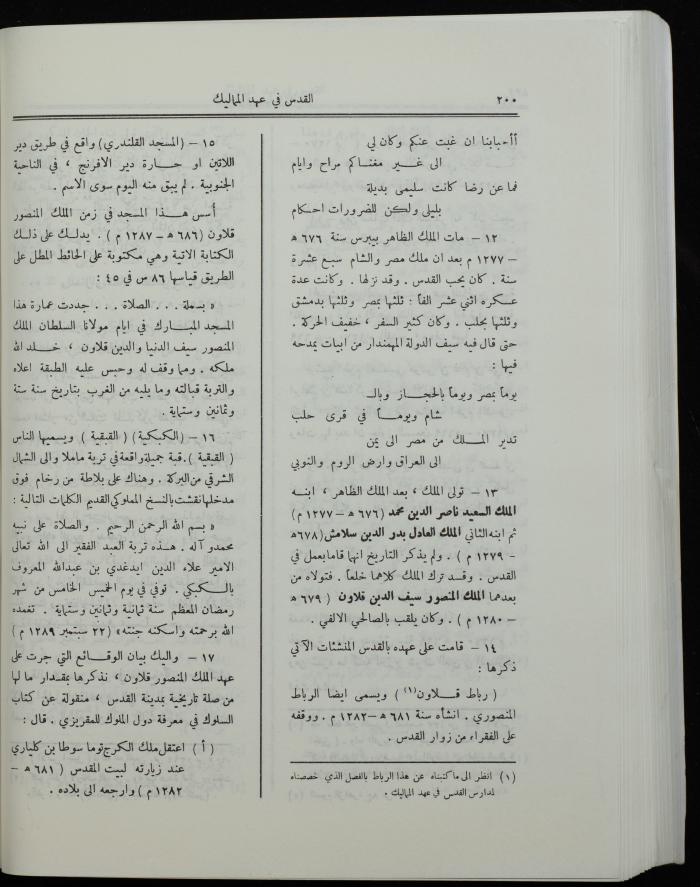 ٢٠٠
القدس في عهد المماليك
أأحبابنا ان غبت عنكم وكان لي
الى غير مغناكم مراح وايام
فما عن رضا كانت سليمى بديلة
بليلى ولكن للضرورات احكام
١٢ – مات الملك الظاهر بيبرس سنة ٦٧٦ ه
– ١٢٧٧ م بعد ان ملك مصر والشام سبع عشرة
سنة . كان يحب القدس . وقد نزلها . وكانت عدة
عسكره اثني عشر الفاً : ثلثها بمصر وثلثها بدمشق
وثلثها بحلب . وكان كثير السفر ، خفيف الحركة .
حتى قال فيه سيف الدولة المهمندار من ابيات يمدحه
فيها :
يوماً بمصر ويوماً بالحجاز وبالـ
شام ويوماً في قرى حلب
تدير الملك من مصر الى يمن
الى العراق وارض الروم والنوبي
١٣ – تولى الملك ، بعد الملك الظاهر ، ابنه
الملك السعيد ناصر الدين محمد (٦٧٦ ه – ١٢٧٧ م)
ثم ابنه الثاني الملك العادل بدر الدين سلامش (٦٧٨ ه
– ١٢٧٩ م ) . ولم يذكر التاريخ انهما قاما بعمل في
القدس . وقد ترك الملك كلاهما خلعاً . فتولاه من
بعدهما الملك المنصور سيف الدين قلاون ( ٦٧٩ ه
– ١٢٨٠ م ) . وكان يلقب بالصالحي الالفي .
١٤ – قامت على عهده بالقدس المنشئات الآتي
ذكرها :
( رباط قلاون (١) ) ويسمى ايضا الرباط
المنصوري . انشأه سنة ٦٨١ ه – ١٢٨٢ م . ووقفه
على الفقراء من زوار القدس .
(١) انظر الى ما كتبناه عن هذا الرباط بالفصل الذي خصصناه
لمدارس القدس في عهد المماليك .
١٥ – (المسجد القلندري) واقع في طريق دير
اللاتين او حارة دير الافرنج ، في الناحية
الجنوبية . لم يبق منه اليوم سوى الاسم .
أسس هذا المسجد في زمن الملك المنصور
قلاون (٦٨٦ ه – ١٢٨٧ م ) . يدلك على ذلك
الكتابة الاتية وهي مكتوبة على الحائط المطل على
الطريق قياسها ٨٦ س في ٤٥ :
« بسملة . . . الصلاة . . . جددت عمارة هذا
المسجد المبارك في ايام مولانا السلطان الملك
المنصور سيف الدنيا والدين قلاون ، خلد الله
ملكه . ومما وقف له وحبس عليه الطبقة اعلاه
والتربة قبالته وما يليه من الغرب بتاريخ سنة ستة
وثمانين وستماية .
١٦ – (الكبكية) ( القبقبية ) ويسميها الناس
( القبقية ) . قبة جميلة واقعة في تربة ماملا والى الشمال
الشرقي من البركة . وهناك على بلاطة من رخام فوق
مدخلها نقشت بالنسخ المملوكي القديم الكلمات التالية :
« بسم الله الرحمن الرحيم . والصلاة على نبيه
محمد و آله . هذه تربة العبد الفقير الى الله تعالى
الامير علاء الدين ايدغدي بن عبدالله المعروف
بالكبكي . توفي في يوم الخميس الخامس من شهر
رمضان المعظم سنة ثمانية وثمانين وستماية . تغمده
الله برحمته واسكنه جنته » (٢٢ سبتمبر ١٢٨٩ م )
١٧ – واليك بيان الوقائع التي جرت على
عهد الملك المنصور قلاون ، نذكرها بمقدار ما لها
من صلة تاريخية بمدينة القدس ، منقولة عن كتاب
السلوك في معرفة دول الملوك للمقريزي . قال :
( أ ) اعتقل ملك الكرج توما سوطا بن كلياري
عند زيارته لبيت المقدس ( ٦٨١ ه –
١٢٨٢ م ) وارجعه الى بلاده .